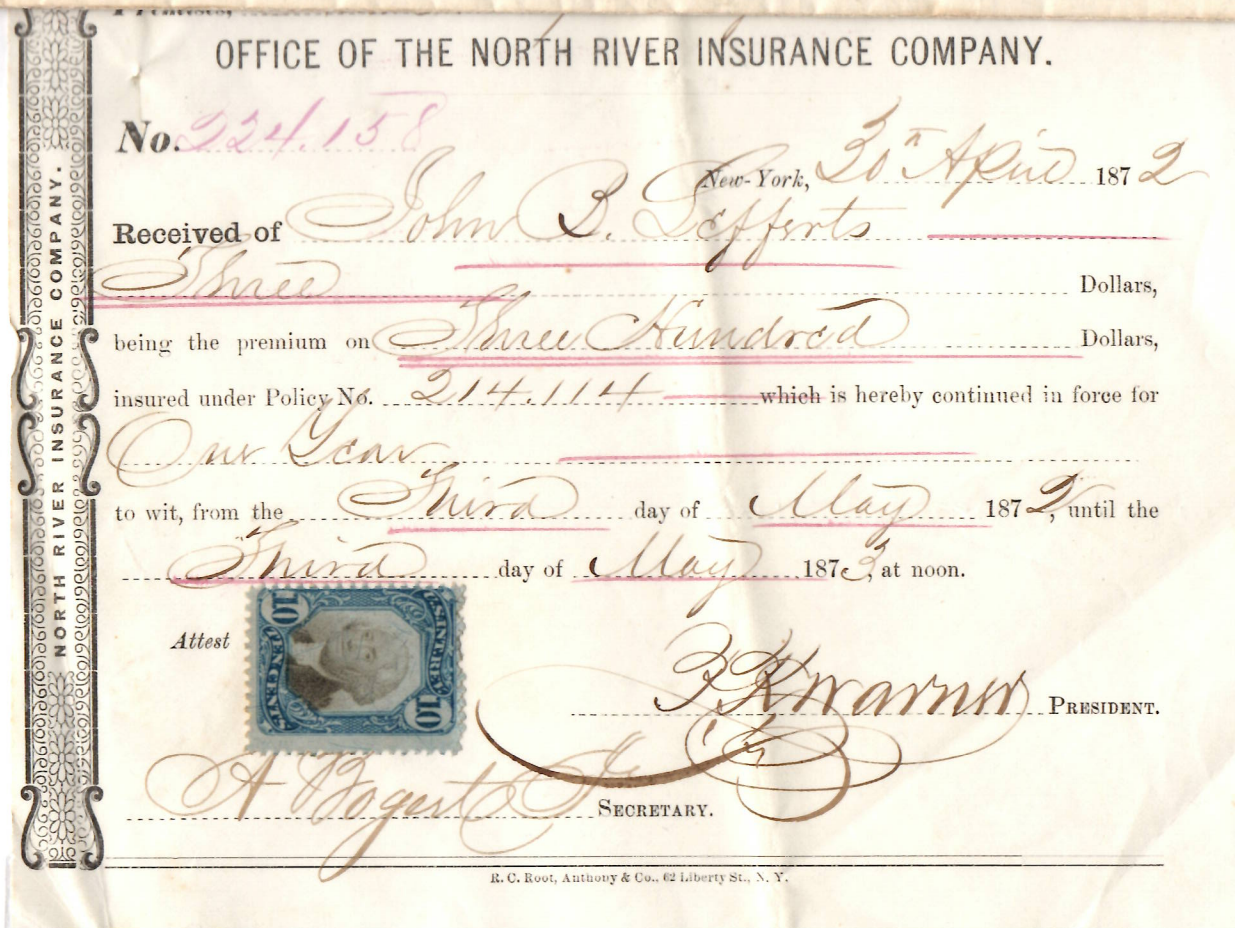 OFFICE OF THE NORTH RIVER INSURANCE COMPANY.
No. 224.158
New-York, 30th April 1872
Received of John B. Lefferts
Three Dollars,
being the premium on Three Hundred Dollars,
insured under Policy No. 214.114 which is hereby continued in force for
One Year
to wit, from the Third day of May 1872, until the
Third day of May 1873, at noon.
Attest
U.S. INTER. REV.
10
TEN CENTS
10
Warner PRESIDENT.
A Bogert Jr SECRETARY.
R. C. Root, Anthony & Co., 62 Liberty St., N. Y.
NORTH RIVER INSURANCE COMPANY.